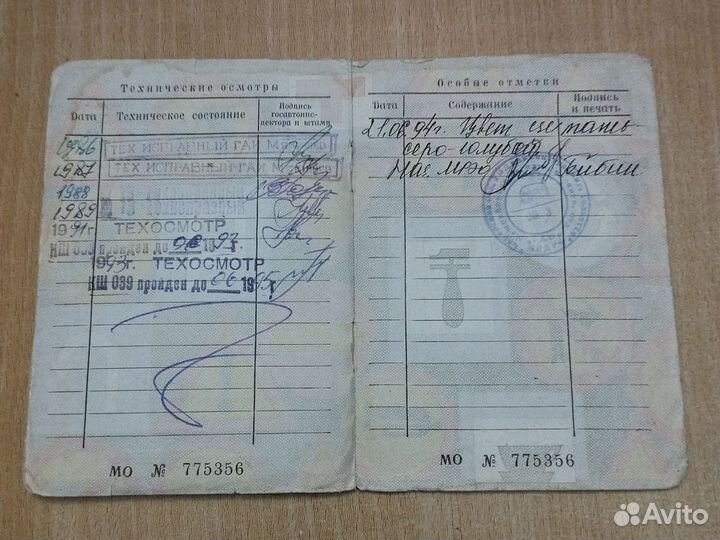 Технические осмотры
Дата Техническое состояние Подпись госавтоинс-
пектора и штамп
1986 ТЕХ ИСПРАВНЫЙ ГАИ
1987 ТЕХ ИСПРАВНЫЙ ГАИ
1988
1989
1991г. ТЕХОСМОТР
КШ 039 пройден до 1993г.
993г. ТЕХОСМОТР
КШ 039 пройден до 06 1995г.
МО № 775356
Особые отметки
Дата Содержание Подпись
и печать
21.06.94г. Цвет
серо-голубой
Нач. МРЭО
МО № 775356
Avito